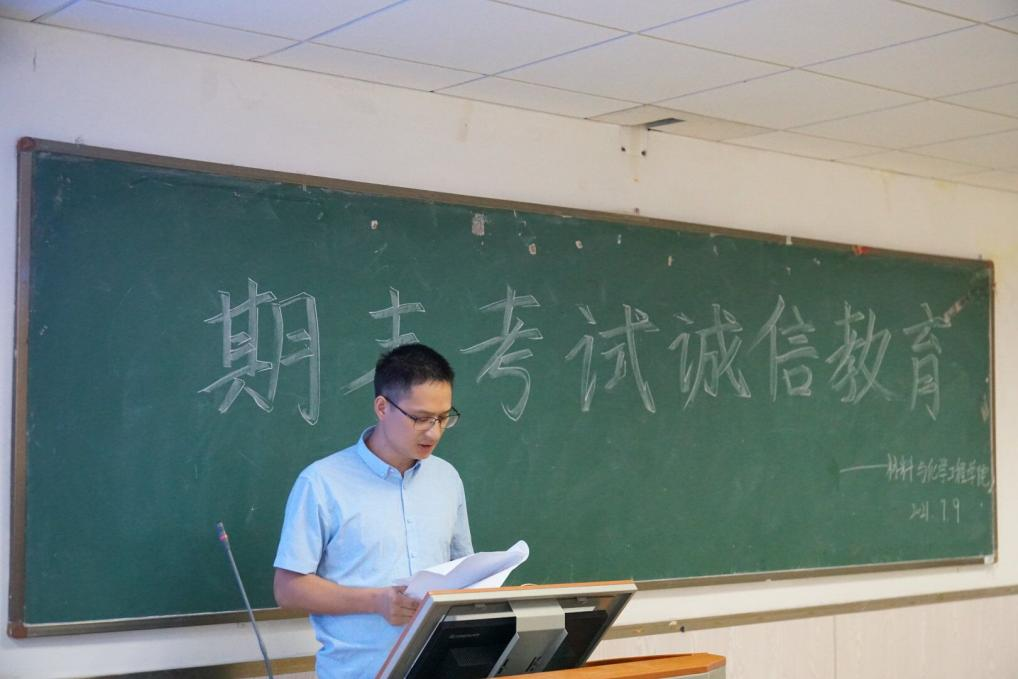 期末考试诚信教育
——材料与化学工程学院
2021.7.9
lenovo